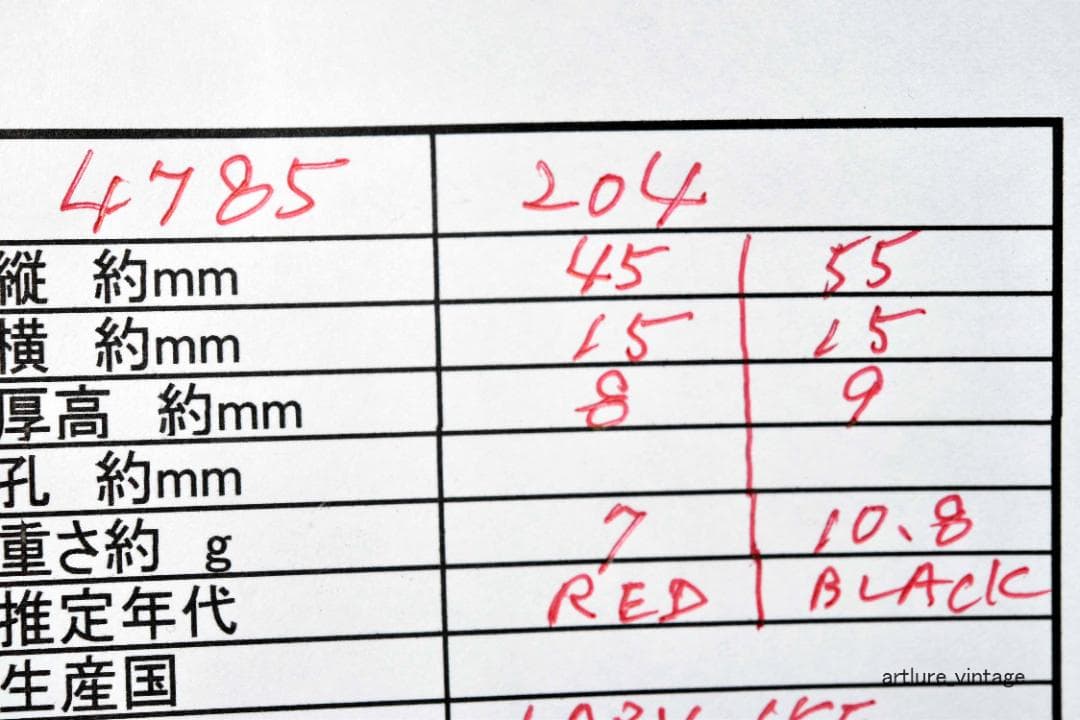 4785 204
縦 約mm 45 55
横 約mm 15 15
厚高 約mm 8 9
孔 約mm
重さ約 g 7 10.8
推定年代 RED BLACK
生産国
artlure_vintage